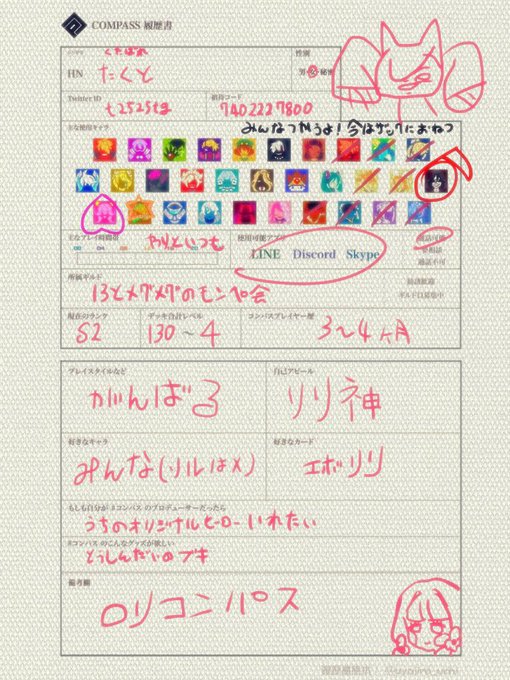 COMPASS 履歴書
くたばれ
HN たくと
性別
男・女・秘密
Twitter ID t2525tg
招待コード 7402227800
みんなつかうよ!今はザックにおねつ
主な使用キャラ
主なプレイ時間帯 わりといつも
使用可能アプリ
LINE Discord Skype
通話可能
要相談
通話不可
所属ギルド
13とメグメグのモンペ会
勧誘歓迎
ギルド員募集中
現在のランク S2
デッキ合計レベル 130~4
コンパスプレイヤー歴 3~4ヶ月
プレイスタイルなど
がんばる
自己アピール
リリ神
好きなキャラ
みんな(ソルは×)
好きなカード
エボリリ
もしも自分が #コンパス のプロデューサーだったら
うちのオリジナルヒーローいれたい
#コンパス のこんなグッズが欲しい
とうしんだいのブキ
備考欄
ロリコンパス